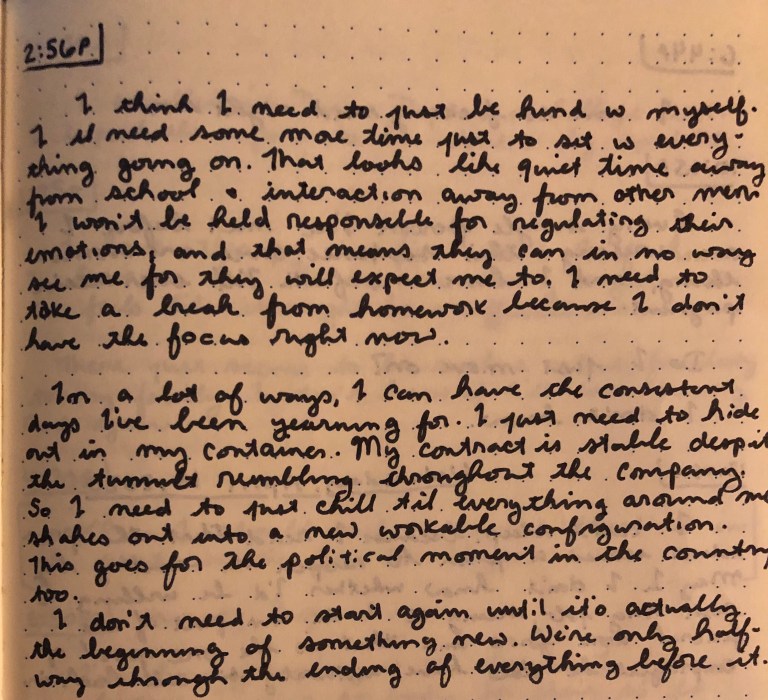 2:56P.
I think I need to just be kind w myself.
I need some more time just to sit w every-
thing going on. That looks like quiet time away
from school & interaction away from other men.
I won't be held responsible for regulating their
emotions, and that means they can in no way
see me for they will expect me to. I need to
take a break from homework because I don't
have the focus right now.
In a lot of ways, I can have the consistent
days I've been yearning for. I just need to hide
out in my container. My contract is stable despit
the tumult rumbling throughout the company.
So I need to just chill til everything around me
shakes out into a new workable configuration.
This goes for the political moment in the country
too.
I don't need to start again until it's actually
the beginning of something new. We're only half-
way through the ending of everything before it.